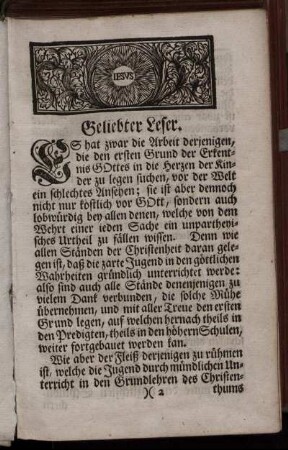 IESVS
Geliebter Leser.
ES hat zwar die Arbeit derjenigen,
die den ersten Grund der Erkent-
nis GOttes in die Herzen der Kin-
der zu legen suchen, vor der Welt
ein schlechtes Ansehen; sie ist aber dennoch
nicht nur köstlich vor GOtt, sondern auch
lobwürdig bey allen denen, welche von dem
Wehrt einer ieden Sache ein unparthei-
sches Urtheil zu fällen wissen. Denn wie
allen Ständen der Christenheit daran gele-
gen ist, daß die zarte Jugend in den göttlichen
Wahrheiten gründlich unterrichtet werde:
also sind auch alle Stände denenjenigen zu
vielem Dank verbunden, die solche Mühe
übernehmen, und mit aller Treue den ersten
Grund legen, auf welchen hernach theils in
den Predigten, theils in den höhern Schulen,
weiter fortgebauet werden kan.
Wie aber der Fleiß derjenigen zu rühmen
ist, welche die Jugend durch mündlichen Un-
terricht in den Grundlehren des Christen-
)( 2 thums